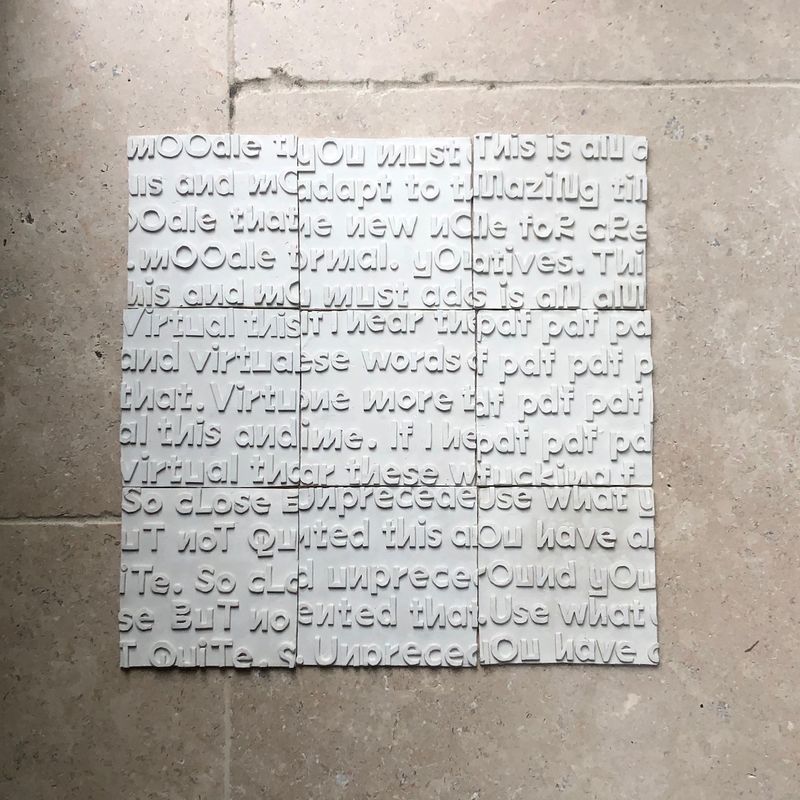 mOOdle th
is and mO
Odle that
.mOOdle
this and mO
yOu must
adapt to th
e new nO
rmal. yOu
must ada
This is an a
mazing tim
e foR cRe
atives. Thi
s is an am
Virtual this
and virtual
that. Virtu
al this and
virtual tha
If I hear the
se words
one more t
ime. If I he
ar these w
pdf pdf pd
f pdf pdf
pdf pdf pdf
pdf pdf pd
fucking f
So cLose B
uT noT Qu
iTe. So cLo
se BuT no
T QuiTe. S
Unprecede
nted this a
d unprece
ented that
. Unpreced
Use what y
Ou have ar
Ound yOu
.Use what
yOu have a